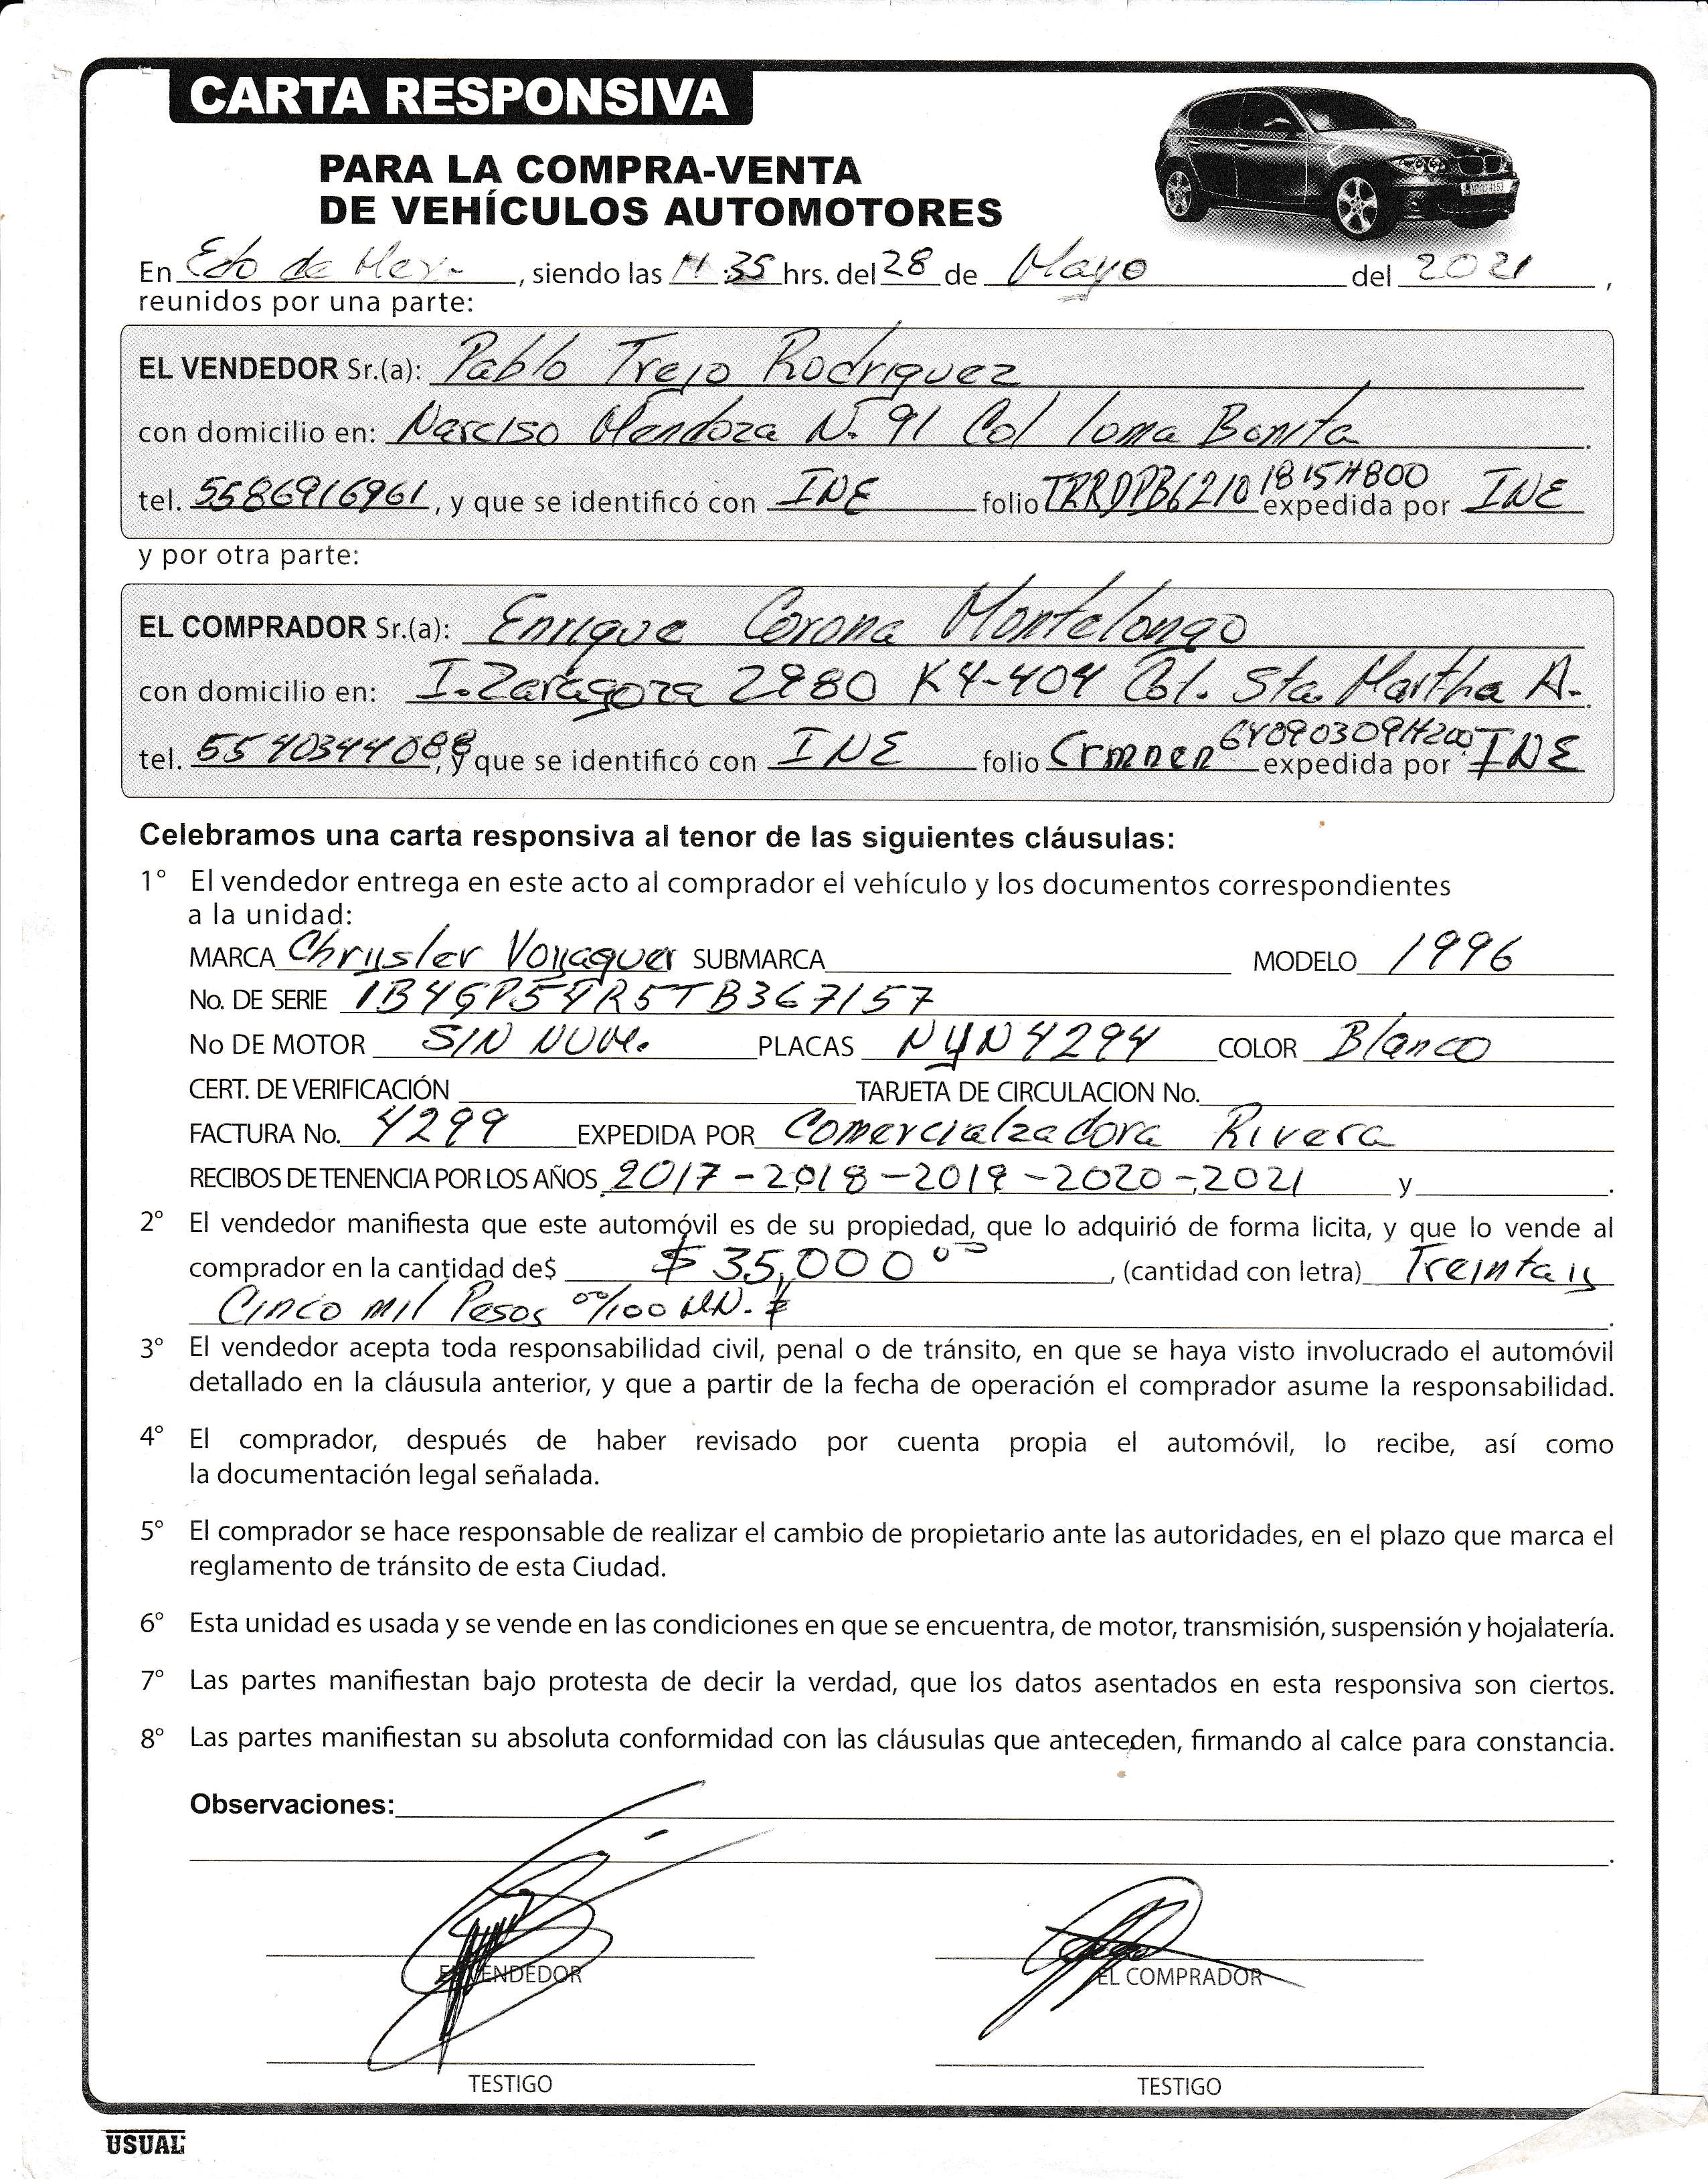 CARTA RESPONSIVA
PARA LA COMPRA-VENTA
DE VEHÍCULOS AUTOMOTORES
En Edo de Mex. , siendo las 11:35 hrs. del 28 de Mayo del 2021 ,
reunidos por una parte:
EL VENDEDOR Sr.(a): Pablo Trejo Rodriguez
con domicilio en: Narciso Mendoza N. 91 Col loma Bonita .
tel. 5586916961 , y que se identificó con INE folio TRRDPB62101815H800 expedida por INE
y por otra parte:
EL COMPRADOR Sr.(a): Enrique Corona Montelongo
con domicilio en: I. Zaragoza 2980 K4-404 Col. Sta. Martha A. .
tel. 5540344088, y que se identificó con INE folio Crmnen64090309H200 expedida por INE
Celebramos una carta responsiva al tenor de las siguientes cláusulas:
1° El vendedor entrega en este acto al comprador el vehículo y los documentos correspondientes
a la unidad:
MARCA Chrysler Voyaguer SUBMARCA MODELO 1996
No. DE SERIE 1B4GP54R5TB367157
No DE MOTOR SIN NUM. PLACAS NYN4294 COLOR Blanco
CERT. DE VERIFICACIÓN TARJETA DE CIRCULACION No.
FACTURA No. 4299 EXPEDIDA POR Comercialzadora Rivera
RECIBOS DE TENENCIA POR LOS AÑOS 2017-2018-2019-2020-2021 y .
2° El vendedor manifiesta que este automóvil es de su propiedad, que lo adquirió de forma licita, y que lo vende al
comprador en la cantidad de$ $ 35,000 00 , (cantidad con letra) Treinta y
Cinco mil Pesos 00/100 MN. .
3° El vendedor acepta toda responsabilidad civil, penal o de tránsito, en que se haya visto involucrado el automóvil
detallado en la cláusula anterior, y que a partir de la fecha de operación el comprador asume la responsabilidad.
4° El comprador, después de haber revisado por cuenta propia el automóvil, lo recibe, así como
la documentación legal señalada.
5° El comprador se hace responsable de realizar el cambio de propietario ante las autoridades, en el plazo que marca el
reglamento de tránsito de esta Ciudad.
6° Esta unidad es usada y se vende en las condiciones en que se encuentra, de motor, transmisión, suspensión y hojalatería.
7° Las partes manifiestan bajo protesta de decir la verdad, que los datos asentados en esta responsiva son ciertos.
8° Las partes manifiestan su absoluta conformidad con las cláusulas que anteceden, firmando al calce para constancia.
Observaciones:
EL VENDEDOR EL COMPRADOR
TESTIGO TESTIGO
USUAL